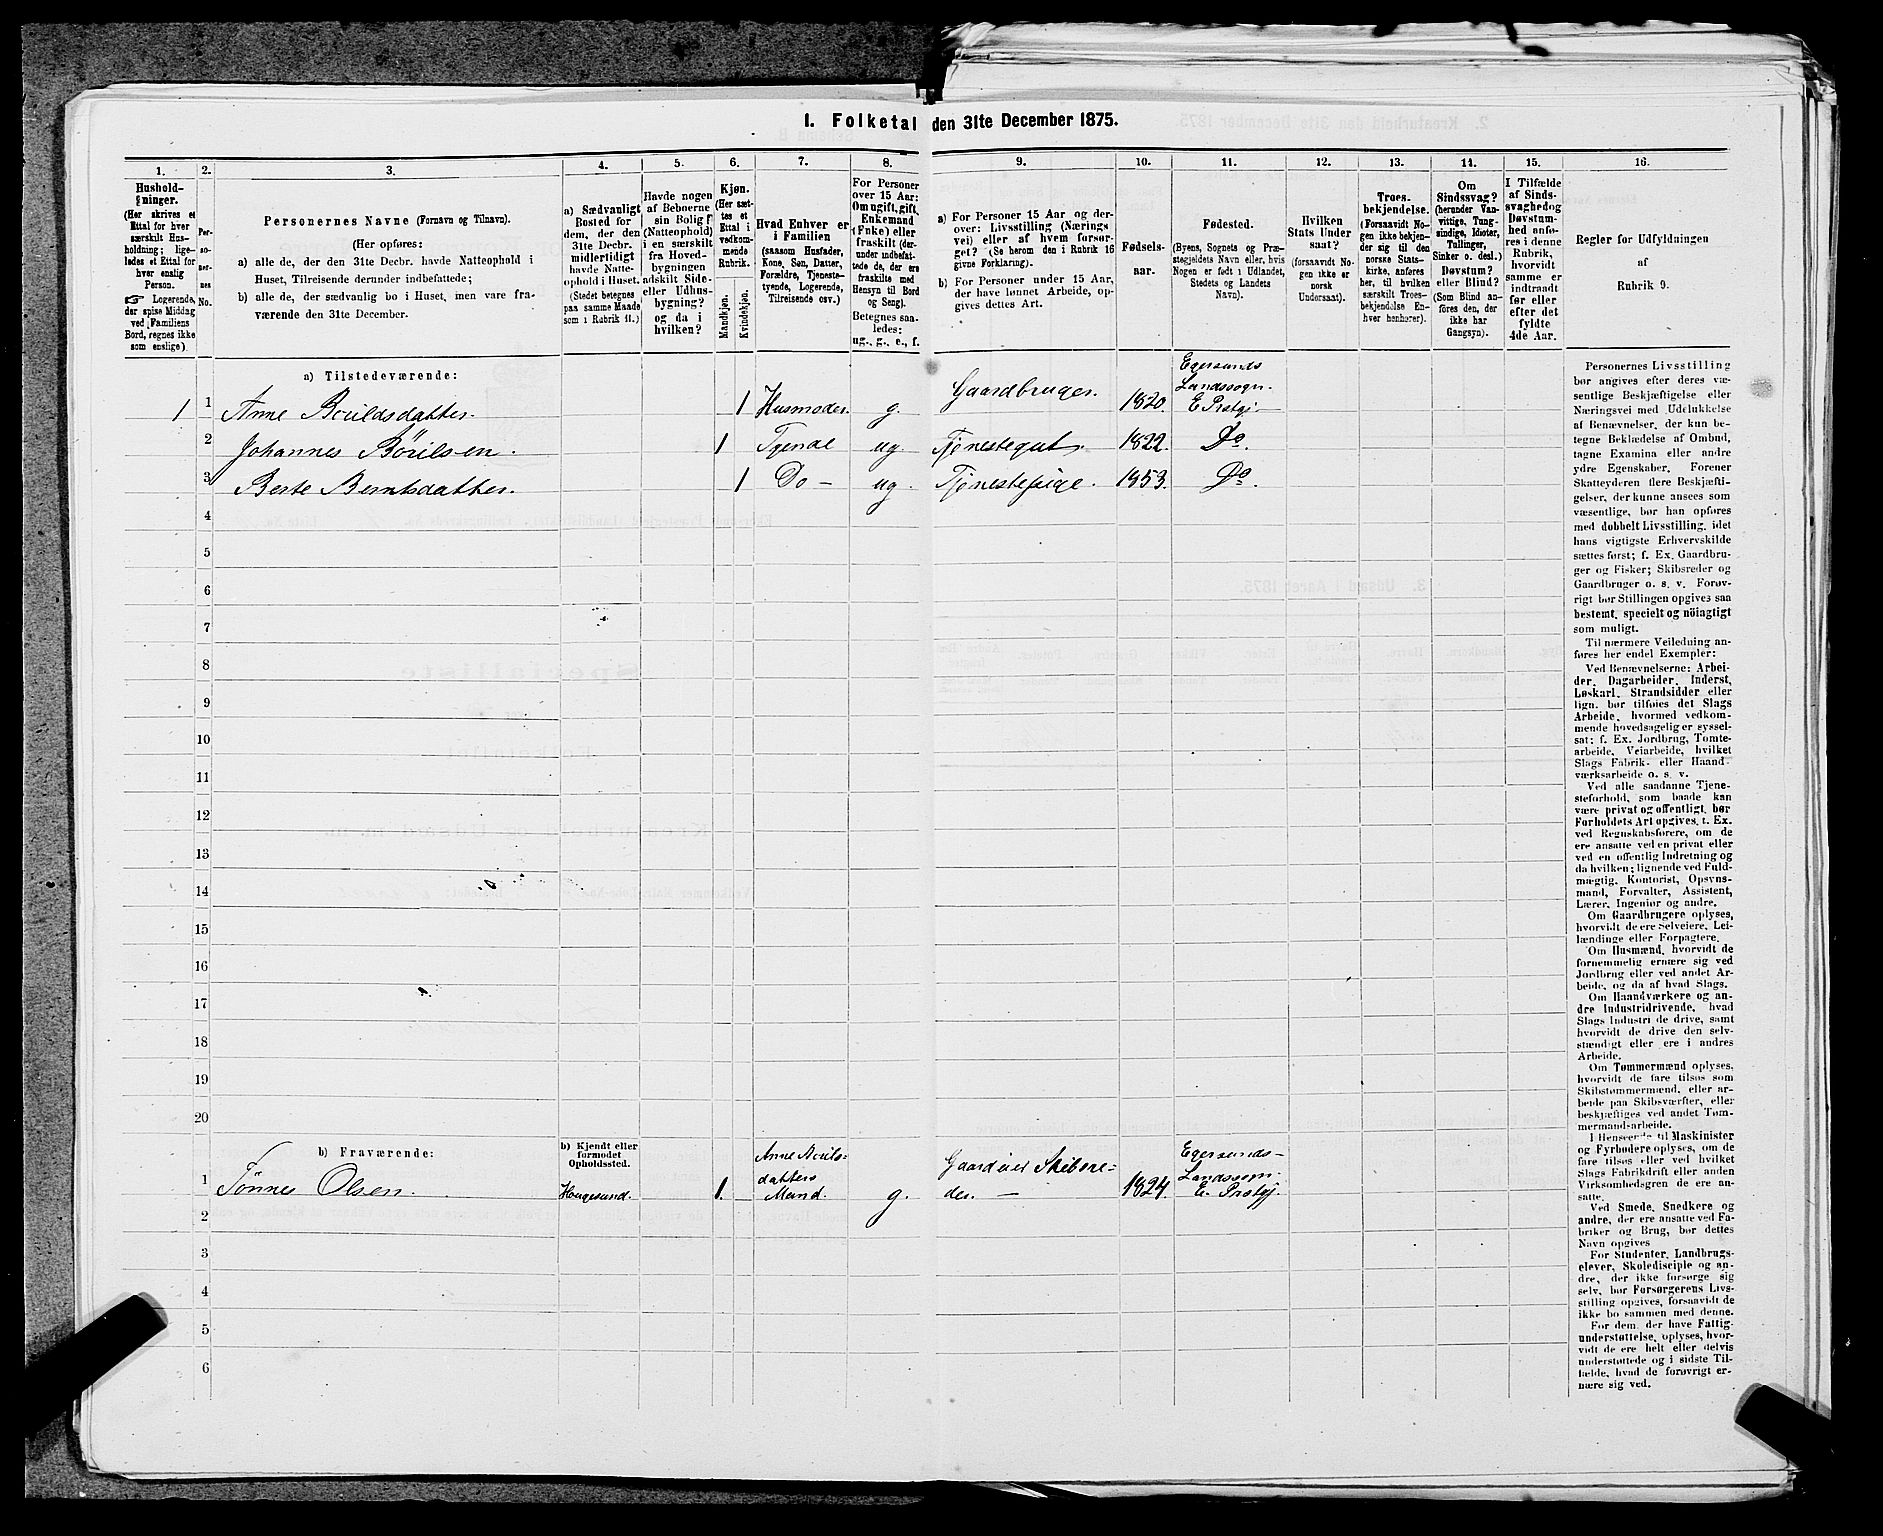 I. Folketal den 31te December 1875.
1. 2. 3. 4. 5. 6. 7. 8. 9. 10. 11. 12. 13. 14. 15. 16.
Hushold-
ninger.
(Her skrives et
Ettal for hver
særskilt Hus-
holdning; lige-
ledes et Ettal for
hver enslig
Person.
Logerende,
der spise Middag
ved Familiens
Bord, regnes ikke
som enslige).
Per-
so-
ner-
nes
No.
Personernes Navne (Fornavn og Tilnavn).
(Her opføres:
a) alle de, der den 31te Decbr. havde Natteophold i
Huset, Tilreisende derunder indbefattede;
b) alle de, der sædvanlig bo i Huset, men vare fra-
værende den 31te December.
a) Sædvanligt
Bosted for
dem, der den
31te Decbr.
midlertidigt
havde Natte-
ophold i Huset.
(Stedet betegnes
paa samme Maade
som i Rubrik 11.)
Havde nogen
af Beboerne
sin Bolig
(Natteophold)
i en særskilt
fra Hoved-
bygningen
adskilt Side-
eller Udhus-
bygning?
og da i
hvilken?
Kjøn.
(Her sæt-
tes et
Ettal i
vedkom-
mende
Rubrik.
Mandkjøn.
Kvindekjøn.
Hvad Enhver er
i Familien
(saasom Husfader,
Kone, Søn, Datter,
Forældre, Tjeneste-
tyende, Logerende,
Tilreisende osv.)
For Personer
over 15 Aar:
Om ugift, gift,
Enkemand
(Enke) eller
fraskilt (der-
under indbefat-
tede de, der ere
fraskilte med
Hensyn til Bord
og Seng).
Betegnes saa-
ledes:
ug., g., e., f.
a) For Personer 15 Aar og der-
over: Livsstilling (Nærings
vei) eller af hvem forsør-
get? (Se herom den i Rubrik 16
givne Forklaring).
b) For Personer under 15 Aar,
der have lønnet Arbeide, op-
gives dettes Art.
Fødsels-
aar.
Fødested.
(Byens, Sognets og Præ-
stegjeldets Navn eller, hvis
Nogen er født i Udlandet,
Stedets og Landets
Navn).
Hvilken
Stats Under
saat?
(forsaavidt No-
gen ikke er
norsk
Undersaat).
Troes-
bekjendelse.
(Forsaavidt No-
gen ikke bekjen-
der sig til den
norske Stats-
kirke, anføres
her, til hvilken
særskilt Troes-
bekjendelse En-
hver henhører).
Om
Sindssvag?
(herunder Van-
vittige, Tung-
sindige, Idioter,
Tullinger,
Sinker o. desl.)
Døvstum?
eller Blind?
(Som Blind an-
føres den, der
ikke har
Gangsyn).
I Tilfælde
af Sinds-
svaghed og
Døvstum-
hed anfø-
res i denne
Rubrik,
hvorvidt
samme er
indtraadt
før eller
efter det
fyldte
4de Aar.
Regler for Udfyldningen
af
Rubrik 9.
a) Tilstedeværende:
1 1 Anne Boildsdatter. 1 Husmoder. g. Gaardbruger. 1820. Egersunds Landssogn. E Prstgj
2 Johannes Börilsen. 1 Tyende ug. Tjenestegut. 1822. Do.
3 Berte Berntsdatter. 1 Do — ug. Tjenestepige. 1853. Do.
4
5
6
7
8
9
10
11
12
13
14
15
16
17
18
19
20
b) Fraværende:
b) Kjendt eller
formodet
Opholdssted.
1 Tönnes Olsen. Haugesund. 1. Mand. g. 1824. Egersunds- Landssogn E. Prstgj.
2
3
4
5
6
Personernes Livsstilling
bør angives efter deres væ-
sentlige Beskjæftigelse eller
Næringsvei med Udelukkelse
af Benævnelser, der kun be-
tegne Beklædelse af Ombud,
tagne Examina eller andre
ydre Egenskaber. Forener
Skatteyderen flere Beskjæfti-
gelser, der kunne ansees som
væsentlige, bør han opføres
med dobbelt Livsstilling, idet
hans vigtigste Erhvervskilde
sættes først; f. Ex. Gaardbru-
ger og Fisker; Skibsreder og
Gaardbruger o. s. v. Forøv-
rigt bør Stillingen opgives saa
bestemt, specielt og nöiagtigt
som muligt.
Til nærmere Veiledning an-
føres her endel Exempler:
Ved Benævnelserne: Arbei-
der, Dagarbeider, Inderst,
Løskarl, Strandsidder eller
lign. bør tilføies det Slags
Arbeide, hvormed vedkom-
mende hovedsagelig er syssel-
sat; f. Ex. Jordbrug, Tomte-
arbeide, Veiarbeide, hvilket
Slags Fabrik- eller Haand-
værksarbeide o. s. v.
Ved alle saadanne Tjene-
steforhold, som baade kan
være privat og offentligt, bør
Forholdets Art opgives, t. Ex.
ved Regnskabsførere, om de
ere ansatte ved en privat eller
ved en offentlig Indretning og
da hvilken; lignende ved Fuld-
mægtig, Kontorist, Opsyns-
mand, Forvalter, Assistent,
Lærer, Ingeniør og andre.
Om Gaardbrugere oplyses,
hvorvidt de ere Selveiere, Lei-
lændinge eller Forpagtere.
Om Husmænd, hvorvidt de
fornemmelig ernære sig ved
Jordbrug eller ved andet Ar-
beide, og da af hvad Slags.
Om Haandværkere og an-
dre Industridrivende, hvad
Slags Industri de drive, samt
hvorvidt de drive den selv-
stændigt eller ere i andres
Arbeide.
Om Tømmermænd oplyses,
hvorvidt de fare tilsøs som
Skibstømmermænd, eller ar-
beide paa Skibsværfter, eller
beskjæftiges ved andet Tøm-
mermand-arbeide.
I Henseende til Maskinister
og Fyrbødere oplyses, om de
fare tilsøs eller ved hvilket
Slags Fabrikdrift eller anden
Virksomhedsgren de ere an-
satte.
Ved Smede, Snedkere og
andre, der ere ansatte ved Fa-
briker og Brug, bør dettes
Navn opgives
For Studenter, Landbrugs-
elever, Skoledisciple og an-
dre, der ikke forsørge sig
selv, bør Forsørgerens Livs-
stilling opgives, forsaavidt de
ikke bo sammen med denne.
For dem, der have Fattig-
understøttelse, oplyses, hvor-
vidt de ere helt eller delvis
understøttede og i sidste Til-
fælde, hvad de forøvrigt er-
nære sig ved.